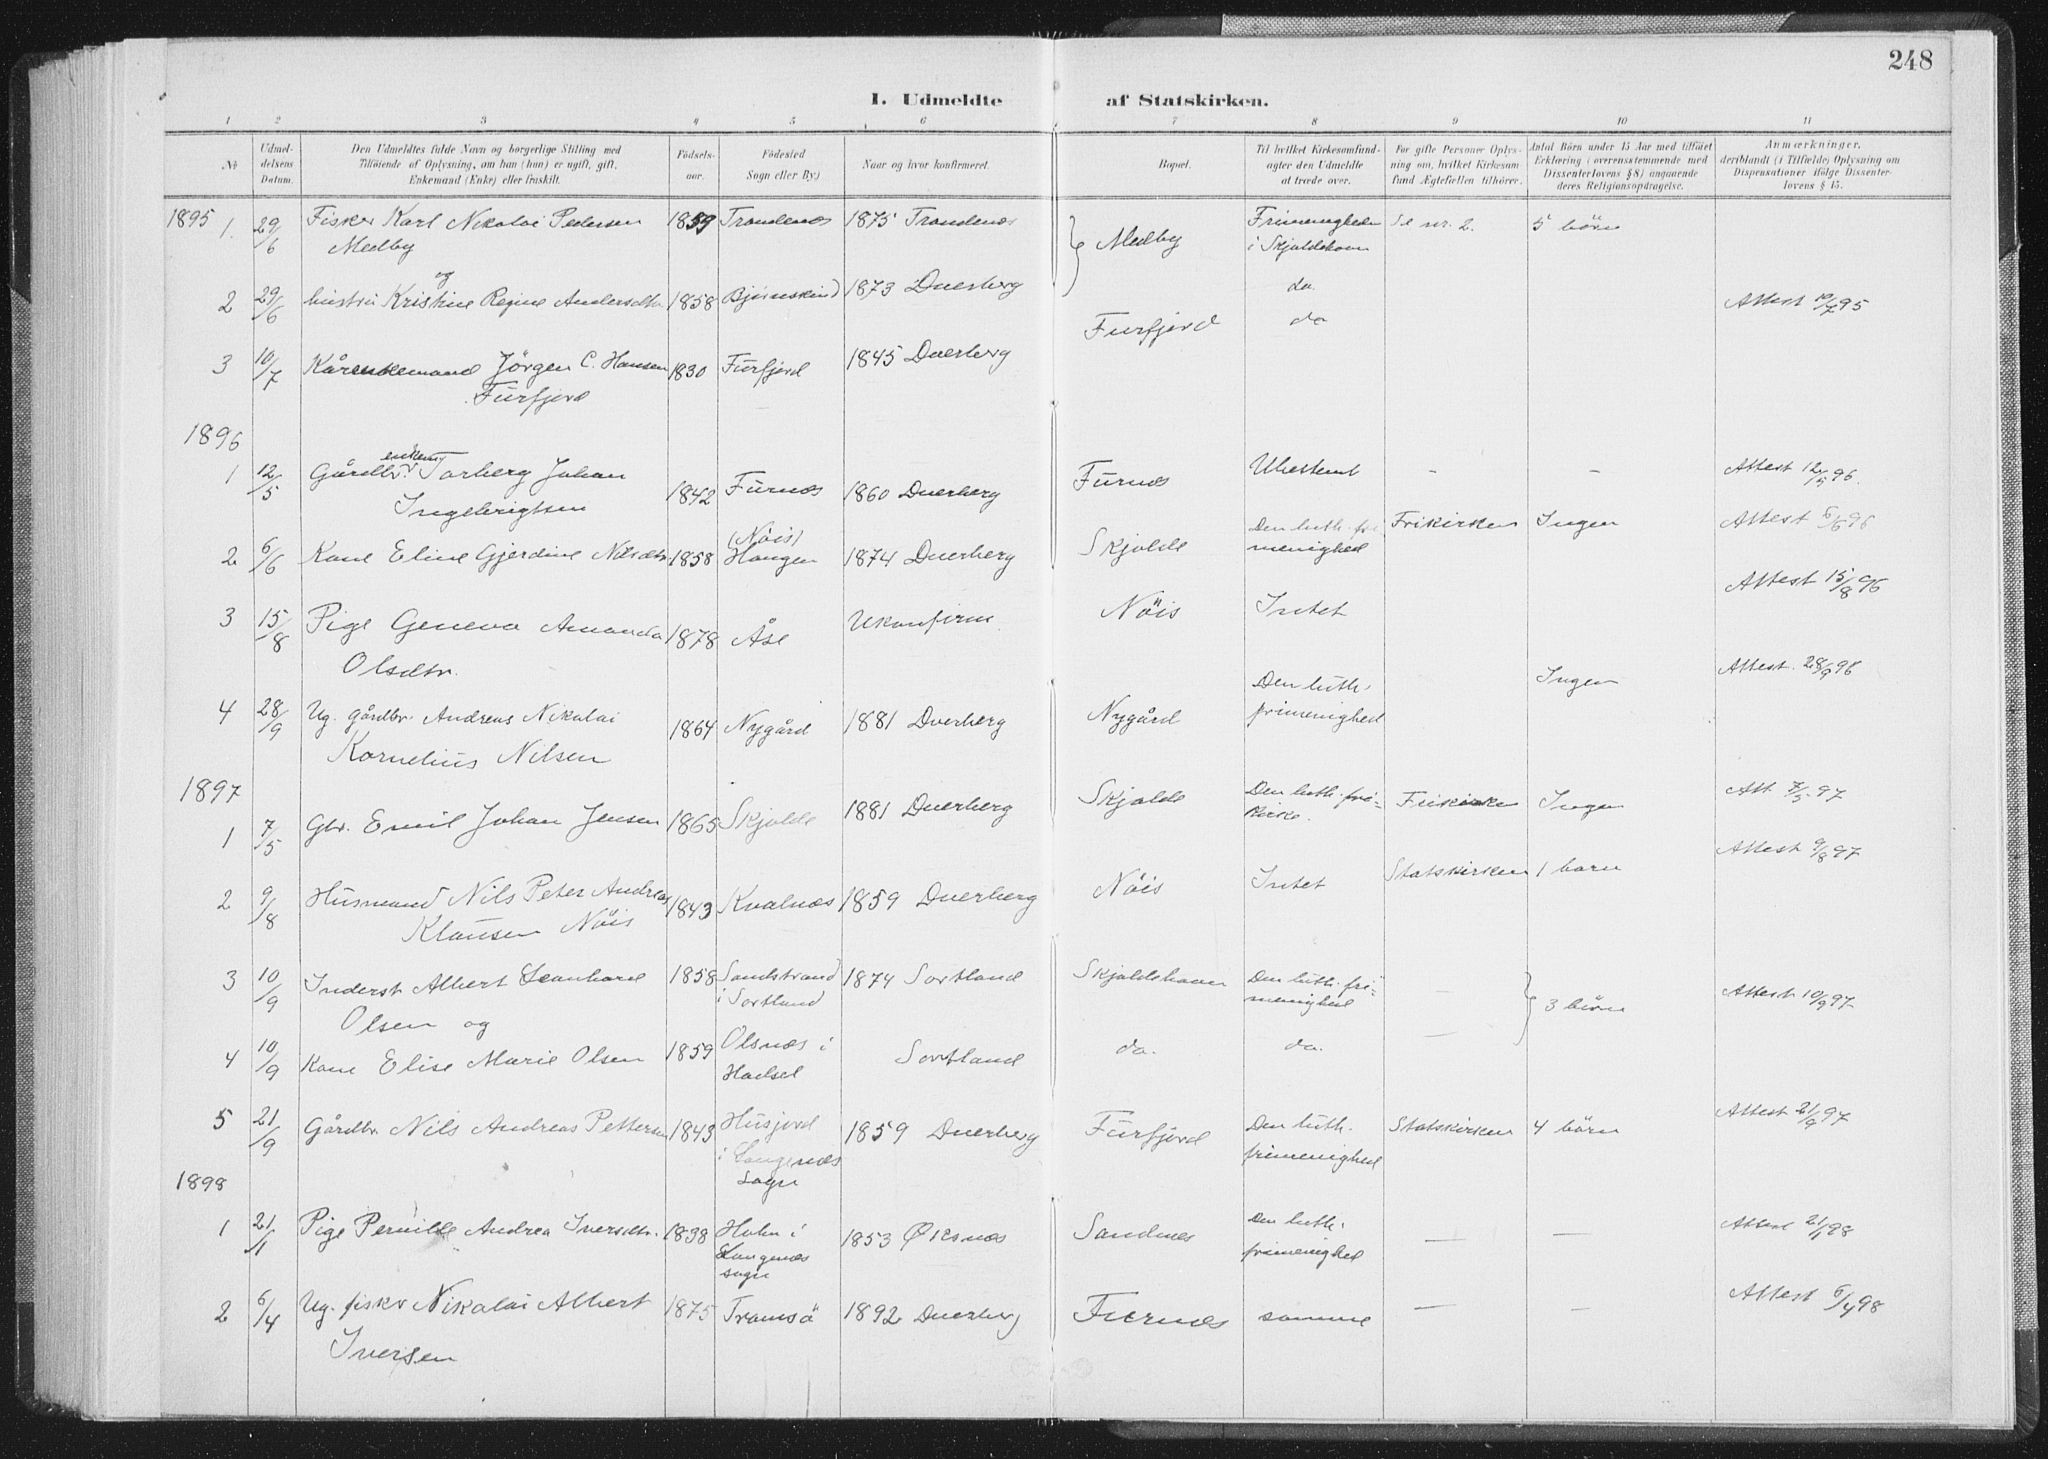 248
I. Udmeldte af Statskirken.
1 2 3 4 5 6 7 8 9 10 11
No
Udmel-
delsens
Datum.
Den Udmeldtes fulde Navn og borgerlige Stilling med
Tilföiende af Oplysning, om han (hun) er ugift, gift,
Enkemand (Enke) eller fraskilt.
Födsels-
aar.
Födested
Sogn eller By.)
Naar og hvor konfirmeret.
Bopæl.
Til hvilket Kirkesamfund
agter den Udmeldte
at træde over.
For gifte Personer Oplys-
ning om, hvilket Kirkesam-
fund Ægtefællen tilhörer.
Antal Börn under 15 Aar med tilföiet
Erklæring (overensstemmende med
Dissenterlovens § 8) angaaende
deres Religionsopdragelse.
Anmærkninger,
deriblandt (i Tilfælde) Oplysning om
Dispensationer ifölge Dissenter-
lovens § 15.
1895 1. 29/6 Fisker Karl Nikolai Pedersen 1859 Trondenæs 1875 Trondenæs Medby Frimenigheden Se nr. 2. 5 börn
Medby i Skjoldehavn
og
2 29/6 hustru Kristine Regine Andersdtr. 1858 Bjørnskind 1873 Dverberg do. Attest 10/7 95
3 10/7 Kårenkemand Jörgen C. Hansen 1830 Furfjord 1845 Dverberg Furfjord do
Furfjord
1896
enkem.
1 12/5 Gårdbr. Torberg Johan 1842 Furnæs 1860 Dverberg Furnæs Ubestemt - - Attest 12/5 96.
Ingebrigtsen
(Nöis)
2 6/6 Kone Eline Gjerdine Nilsdtr. 1858 Haugen 1874 Dverberg Skjolde Den luth. fri- Frikirken Ingen Attest 6/6 96
menighed
3 15/8 Pige Geneva Amanda 1878 Åse Ukonfirm. Nöis Intet Attest 15/8 96
Olsdtr.
4 28/9 Ug. gårdbr. Andreas Nikolai 1864 Nygård 1881 Dverberg Nygård Den luth. Ingen Attest. 28/9 96
Kornelius Nilsen frimenighed
1897
1 7/5 Gbr. Emil Johan Jensen 1865 Skjolde 1881 Dverberg Skjolde Den luth. fri- Frikirken Ingen Att. 7/5 97
kirke.
2 9/8 Husmand Nils Peter Andreas 1843 Kvalnæs 1859 Dverberg Nöis Intet Statskirken 1 barn Attest 9/8 97
Klausen Nöis
3 10/9 Inderst Albert Leonhard 1858 Sandstrand 1874 Sortland Skjoldehavn Den luth. fri- - 3 börn Attest 10/9 97
Olsen og i Sortland menighed
4 10/9 Kone Elise Marie Olsen 1859 Olsnæs i Sortland do. do. -
Hadsel
5 21/9 Gårdbr. Nils Andreas Pettersen 1843 Husjord 1859 Dverberg Furfjord Den luth. Statskirken 4 börn Attest 21/9 97
i Langenæs frimenighed
Sogn
1898
1 21/1 Pige Pernille Andrea Iversdtr. 1838 Holm i 1853 Öksnæs Sandnes Den luth. - - Attest 21/1 98
Langenæs frimenighed
sogn
2 6/4 Ug. fisker Nikolai Albert 1875 Tromsö 1892 Dverberg Furnæs samme - - Attest 6/4 98
Iversen